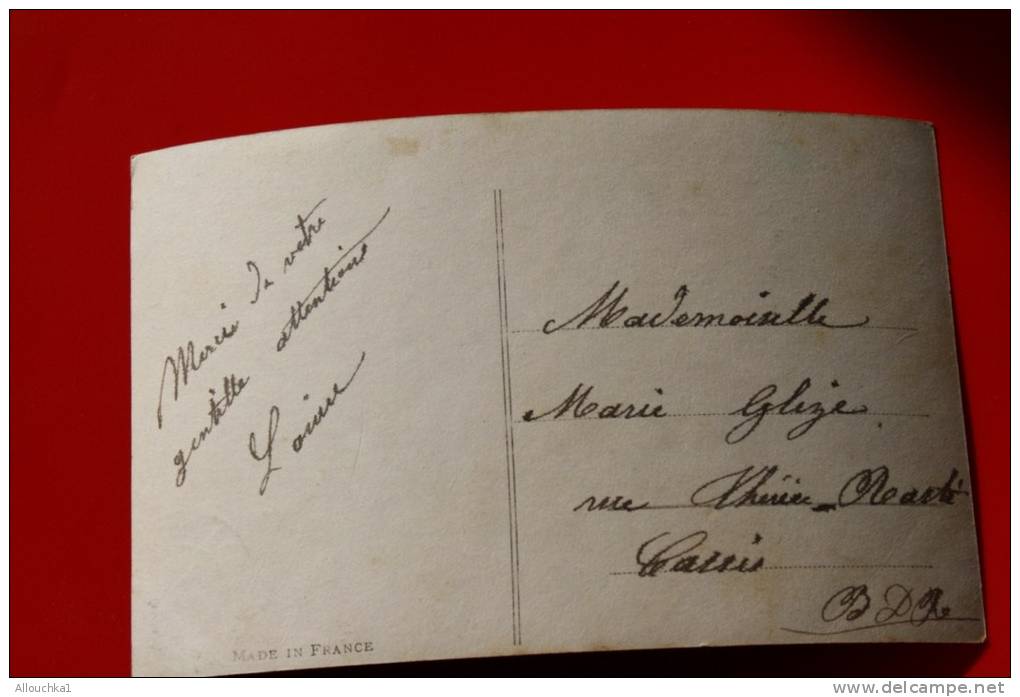 Merci de votre
gentille attention
Louise
Mademoiselle
Marie Glize
rue Thérèse-Rastit
Cassis
BDR
MADE IN FRANCE
Allouchka1
http://www.delcampe.net